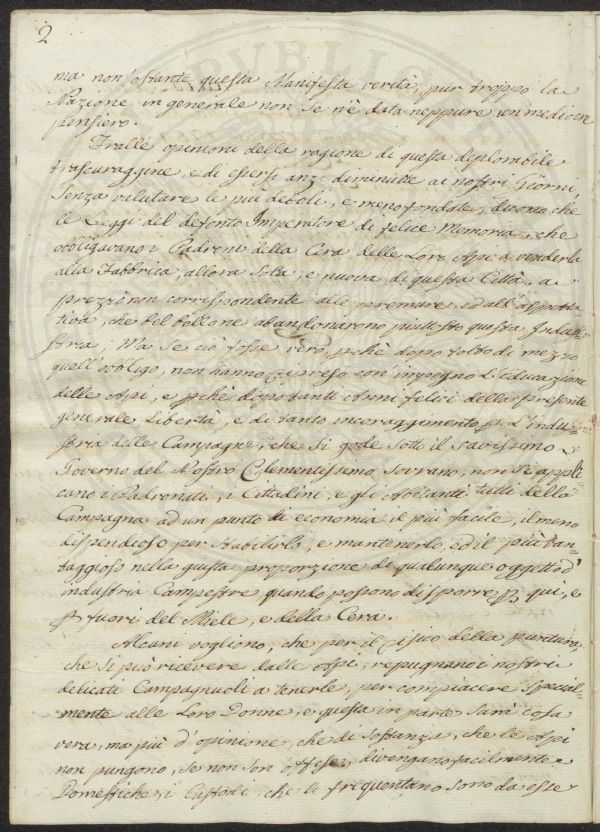 2
ma non ostante questa Manifesta verità, pur troppo la
Nazione in generale non se n'è data neppure un mediocre
pensiero.
Fralle opinioni della ragione di questa deplorabile
trascuraggine, e di essersi anzi diminuite ai nostri Giorni,
senza valutare le più deboli, e meno fondate, dicono che
le Leggi del defonto Imperatore di felice Memoria, che
obbligavano i Padroni della Cera delle Loro Api a venderla
alla Fabbrica, allora sola, e nuova di questa Città, a
prezzo non corrispondente alle premure, ed all'aspetta
tiva, che bel bello ne abandonarono piuttosto questa Indu
stria; Ma se ciò fosse vero, pchè dopo tolto di mezzo
quell'obbligo, non hanno ripreso con impegno l'Educazione
delle Api, e pchè dopo tanti Anni felici della presente
generale Libertà, e di tanto incoraggimento p. L'indu=
stria delle Campagne, che si gode sotto il savissimo
Governo del Nostro Clementissimo Sovrano, non si appli
cano i Padronati, i Cittadini, e gli Abitanti tutti della
Campagna ad un punto di economia il più facile, il meno
dispendioso per stabilirlo, e mantenerlo, ed il più van=
taggioso nella giusta proporzione di qualunque oggetto d'
industria Campestre quando possono disporre p. qui, e
p. fuori del Miele, e della Cera.
Alcuni vogliono, che per il risico della puntura,
che si può ricevere dalle Api, repugnano i nostri
delicati Campagnuoli a tenerle, per compiacere special=
mente alle Loro Donne, e questa in parte sarà cosa
vera, ma più d'opinione, che di sostanza, che le Api
non pungono, se non son offese, divengono facilmente
Domestiche, i Custodi che le frequentano sono da este